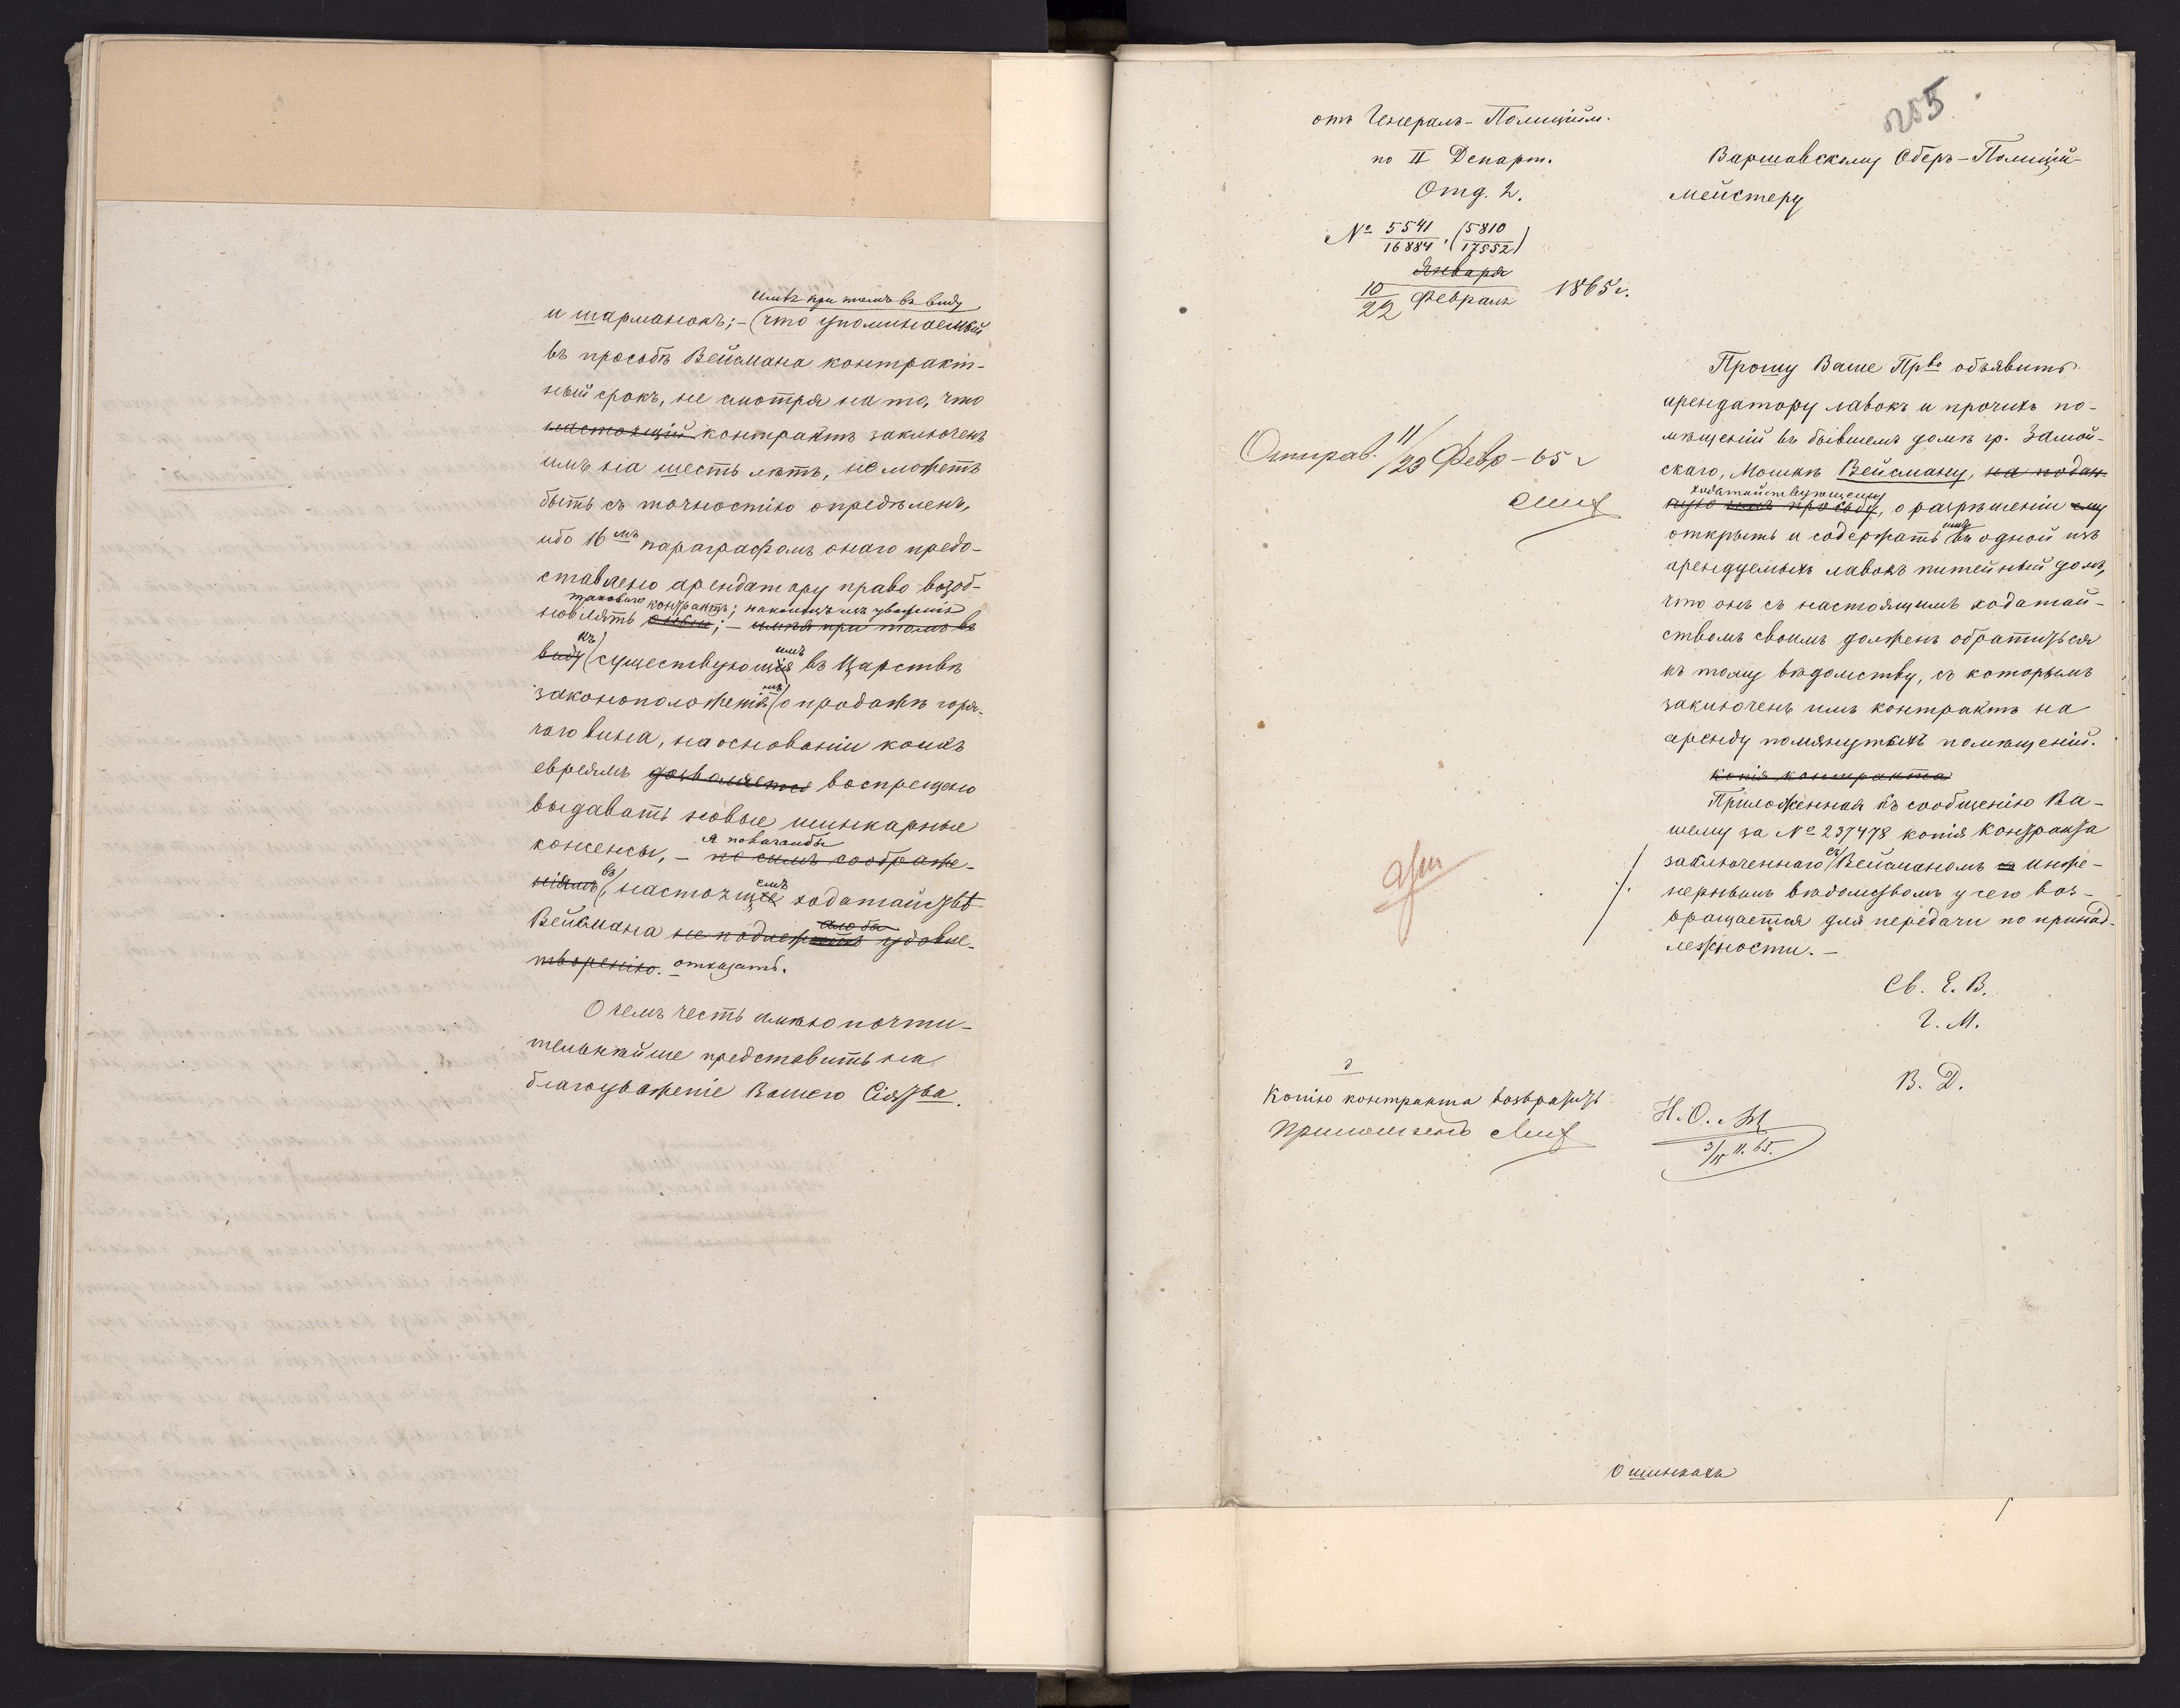 имѣя при томъ въ виду
и шарманокъ; – (что упоминаемый
въ просьбѣ Вейсмана контракт-
ный срокъ, не смотря на то, что
настоящій контрактъ заключенъ
имъ на шесть лѣтъ, не можетъ
быть съ точностію опредѣленъ,
ибо 16мъ параграфомъ онаго предо-
ставлено арендатору право возоб-
таковыго контрактъ; наконецъ изъ уваженія
новлять оный; – имѣя при томъ въ
къ имъ
виду (существующія въ Царствѣ
мъ
законоположенія (о продажѣ горя-
чаго вина, на основаніи коихъ
евреямъ дозволяется воспрещено
выдавать новые шинкарные
я полагалъ бы
консенсы, – по симъ соображе-
въ емъ
ніямъ (настоящее ходатайствѣ
ало бы
Вейсмана не подлежитъ удовле-
творенію. отказать.
О чемъ честь имѣю почти-
тельнѣйше представить на
благоуваженіе Вашего Сіятва.
255
отъ Генералъ-Полиційм.
по II Департ.
Отд. 2.
№ 5541/16884, (5810/17552)
Января
10/22 Февраля 1865 г.
Варшавскому Оберъ-Полицій-
мейстеру
Отправ. 11/23 Февр – 65 г
Прошу Ваше Прво объявить
арендатору лавокъ и прочихъ по-
мѣщеній въ бывшемъ домѣ гр. Замой-
скаго, Мошкѣ Вейсману, на подан-
ходатайствующему
ную имъ просьбу, о разрѣшеніи ему
имъ
открыть и содержать въ одной изъ
арендуемыхъ лавокъ питейный домъ,
что онъ съ настоящимъ ходатай-
ствомъ своимъ долженъ обратиться
къ тому вѣдомству, съ которымъ
заключенъ имъ контрактъ на
аренду помянутыхъ помѣщеній.
Копія контракта
Приложенная къ сообщенію Ва-
шему за № 237478 копія контракта
съ
заключеннаго Вейсманомъ съ инже-
нернымъ вѣдомствомъ у сего воз-
вращается для передачи по принад-
лежности. –
Св. Е. В.
Г. М.
В. Д.
Копію контракта возвратить
Н. О.
3/15 II. 65.
О шинкахъ